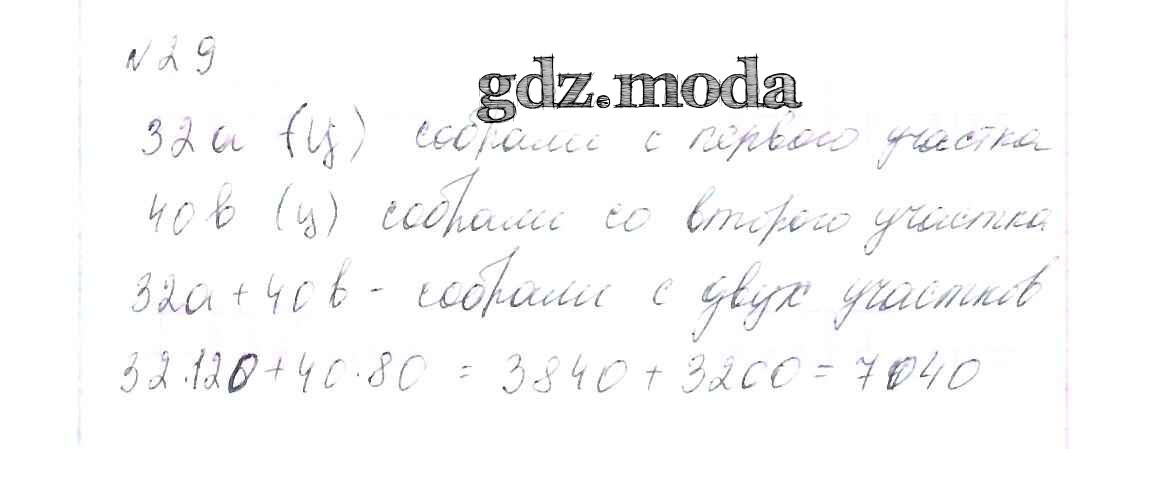 №29
gdz.moda
32a (ц) собрали с первого участка
40b (ц) собрали со второго участка
32a + 40b - собрали с двух участков
32·120 + 40·80 = 3840 + 3200 = 7040